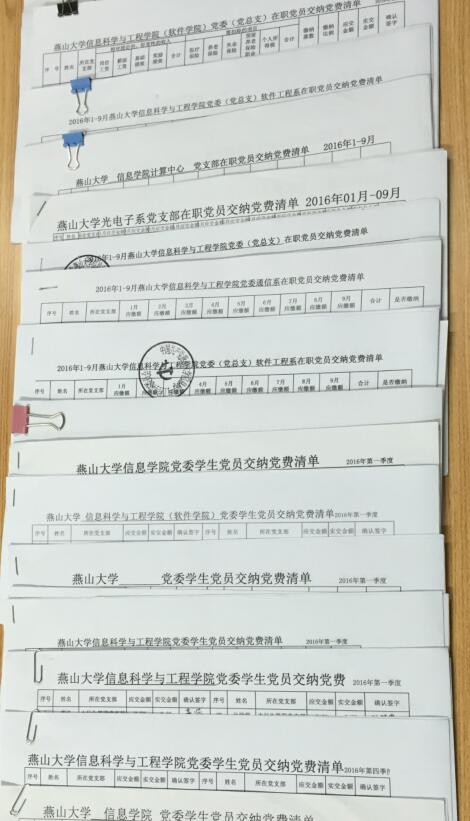 燕山大学信息科学与工程学院（软件学院）党委（党总支）在职党员交纳党费清单
序号 姓名 所在党支部 岗位工资 薪级工资 基础绩效 奖励绩效 合计 医疗保险 养老保险 失业保险 职业 个人所得税 合计 缴纳基数 缴纳比例 应交金额 实交金额 确认签字
2016年1-9月燕山大学信息科学与工程学院党委（党总支）软件工程系在职党员交纳党费清单
燕山大学 信息学院计算中心 党支部在职党员交纳党费清单 2016年1-9月
燕山大学光电子系党支部在职党员交纳党费清单 2016年01月-09月
2016年1-9月燕山大学信息科学与工程学院党委（党总支）在职党员交纳党费清单
2016年1-9月燕山大学信息科学与工程学院党委通信系在职党员交纳党费清单
序号 姓名 所在党支部 1月应缴额 2月应缴额 3月应缴额 4月应缴额 5月应缴额 6月应缴额 7月应缴额 8月应缴额 9月应缴额 合计 是否缴纳
2016年1-9月燕山大学信息科学与工程学院党委（党总支）软件工程系在职党员交纳党费清单
序号 姓名 所在党支部 1月应缴额 4月应缴额 5月应缴额 6月应缴额 7月应缴额 8月应缴额 9月应缴额 合计 是否缴纳
燕山大学信息学院党委学生党员交纳党费清单 2016年第一季度
燕山大学 信息科学与工程学院（软件学院）党委学生党员交纳党费清单2016年第一季度
序号 姓名 所在党支部 应交金额 实交金额 确认签字 序号 姓名 所在党支部 应交金额 实交金额 确认签字
燕山大学 党委学生党员交纳党费清单 2016年第一季度
燕山大学信息科学与工程学院党委学生党员交纳党费清单 2016年第一季度
燕山大学信息科学与工程学院党委学生党员交纳党费 2016年第一季度
序号 姓名 所在党支部 应交金额 实交金额 确认签字 序号 姓名 所在党支部 应交金额 实交金额 确认签字
燕山大学信息科学与工程学院党委学生党员交纳党费清单2016年第四季
序号 姓名 所在党支部 应交金额 实交金额 确认签字 序号 姓名 所在党支部 应交金额 实交金额 确认签字
燕山大学 信息学院 党委学生党员交纳党费清单